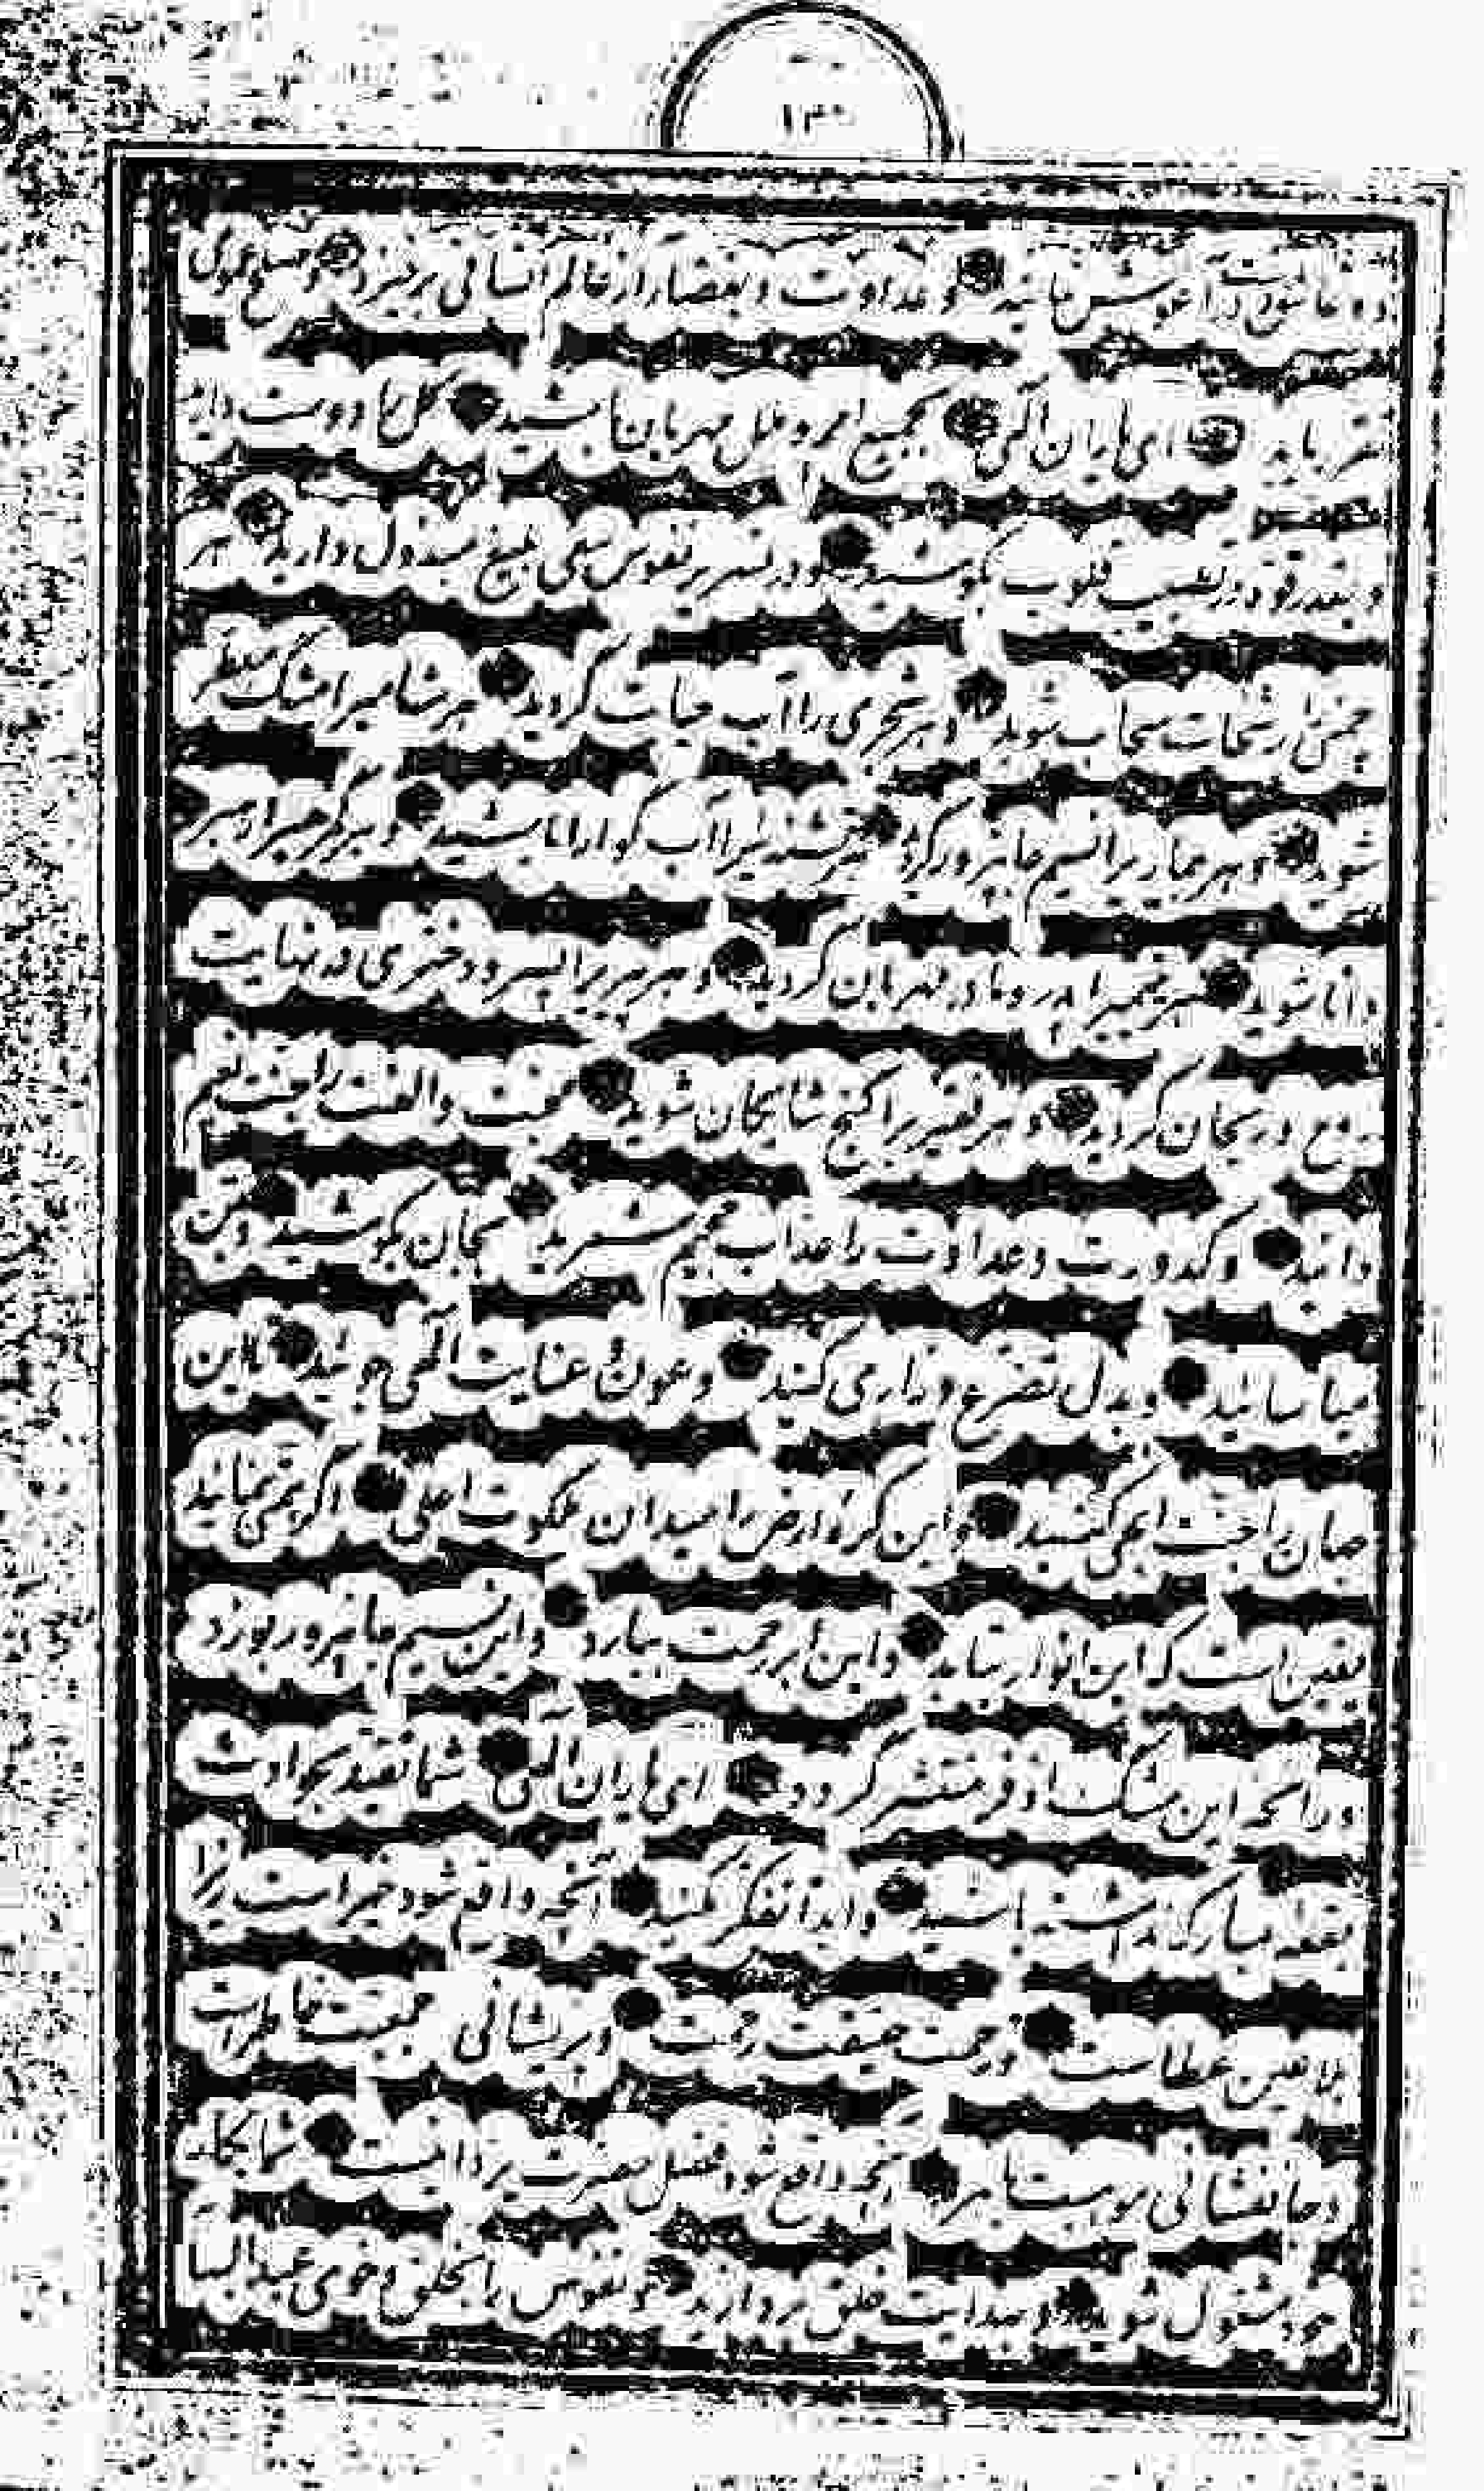 ١٣٠
دو عاشق در آغوش نمایند و عداوت و بغضا را از عالم انسانی
نمایند ای یاران الهی بجمیع امم و ملل مهربان باشید کل را دوست دارید
و بقدر قوه در قلوب بکوشید و در نفوس سعی بلیغ مبذول دارید هر
چمنی را رشحات سحاب شوید و هر شجری را آب حیات گردید هر مشامیرا مشک معطر
شوید و هر بیمار را نسیم جانپرور گردید هر تشنه را آب گوارا باشید و هر گمرهیرا رهبر
دانا شوید هر یتیمیرا پدر و مادر مهربان گردید و هر پیریرا پسر و دختری در نهایت
روح و ریحان گردید و هر فقیریرا گنج شایگان شوید محبت و الفت را جنت نعیم
دانید و کدورت و عداوت را عذاب جحیم شمرید بجان بکوشید و تن
میاسائید و بدل تضرع و زاری کنید و عون و عنایت الهی جوئید تا این
جهان را جنت ابهی کنید و این کره ارض را میدان ملکوت اعلی اگر همتی نمائید
یقین است که این انوار بتابد و این ابر رحمت ببارد و این نسیم جانپرور بوزد
و رائحه این مشک اذفر منتشر گردد ای یاران الهی شما تقید بحوادث
بقعه مبارکه نداشته باشید و ابدا تفکر نکنید آنچه واقع شود خیر است زیرا
بلا عین عطاست و زحمت حقیقت رحمت و پریشانی جمعیت خاطر است
و جانفشانی موهبت آنچه واقع شود فضل حضرت یزدانست شما بکار
خود مشغول شوید و بهدایت خلق پردازید و نفوس را بخلق و خوی عبدالبهاء